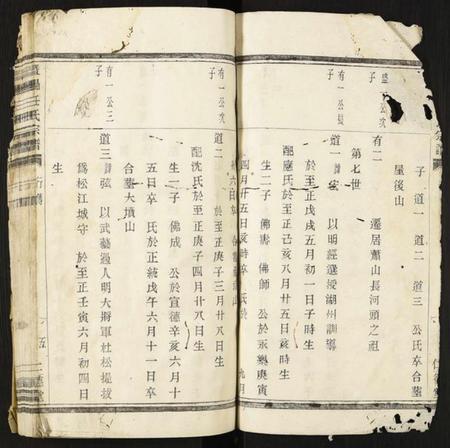 子 道一 道二 道三 公氏卒合墓
屋後山
盛一公次子
有二 遷居蕭山長河頭之祖
第七世
有一公長子
道一 以明經選授湖州訓導
於至正戊戌五月初一日子時生
配應氏於至正己亥八月廿五日亥時生
生二子 佛壽 佛師 公於永樂庚寅
四月廿五日亥時卒 氏於
六日卒
有一公次子
道二 於至正庚子三月廿八日生
配沈氏於至正庚子四月廿八日生
生一子 佛成 公於宣德辛亥六月十
五日卒 氏於正統戊午六月十一日卒
合墓大墳山
有一公三子
道三 諱弦 以武藝過人明大將軍杜松擢拔
爲松江城守 於至正壬寅六月初四日
生
任氏宗譜